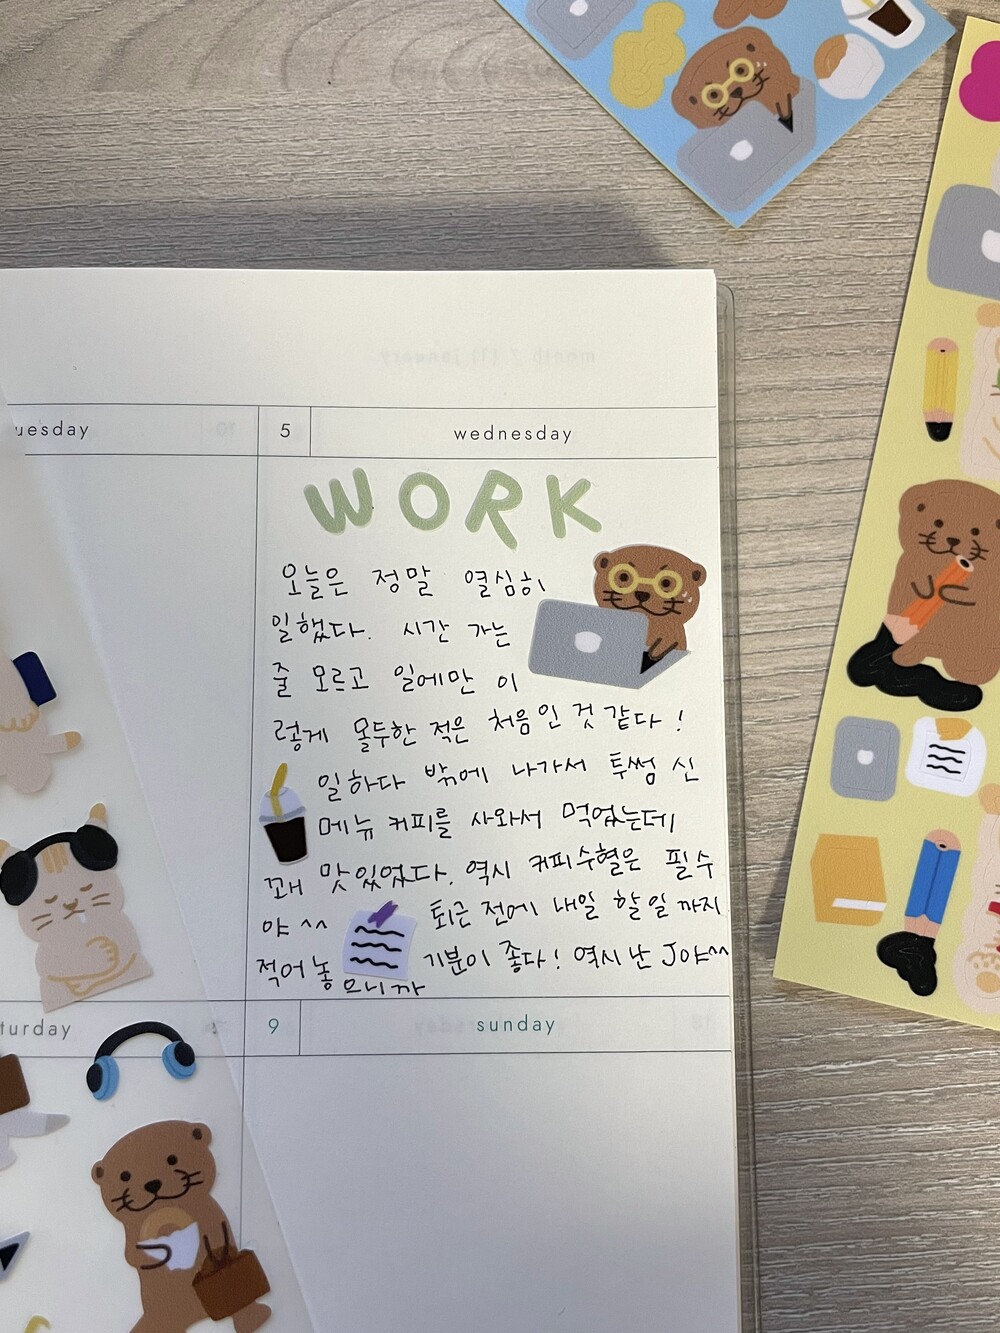 month / (1) january
uesday
5
wednesday
WORK
오늘은 정말 열심히
일했다. 시간 가는
줄 모르고 일에만 이
렇게 몰두한 적은 처음인 것 같다!
일하다 밖에 나가서 투썸 신
메뉴 커피를 사와서 먹었는데
꽤 맛있었다. 역시 커피수혈은 필수
야^^ 퇴근 전에 내일 할일까지
적어놓으니까 기분이 좋다! 역시 난 J야^^
turday
9
sunday